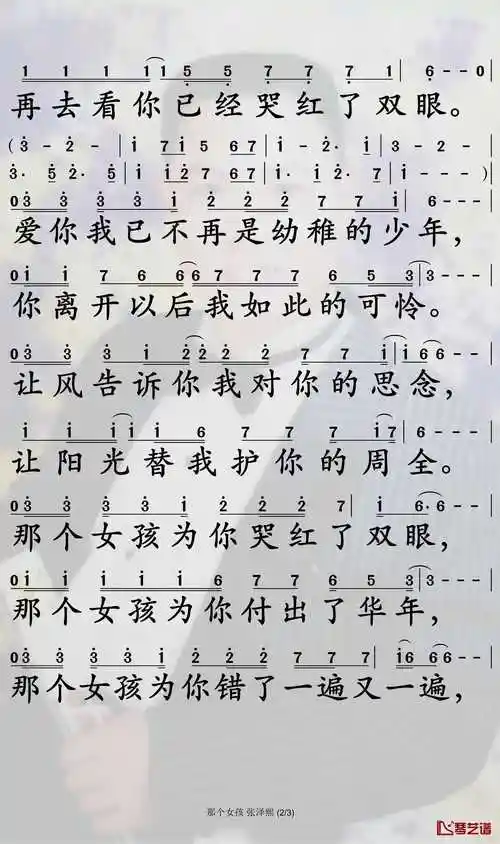 1 1 1 1 1 5 5 7 7 7 1 | 6 - - 0
再去看你已经哭红了双眼。
( 3 - 2 - | i 7 i 5 6 7 | i - 2 · i | 3 - 2 -
3 · 2 · 5 | i 2 i 5 6 7 | i i 2 7 6 7 | i · i 2 · 7 | i - - - )
0 3 3 3 3 i 2 2 2 2 7 7 i | 6 - - -
爱你我已不再是幼稚的少年,
0 i i 7 6 6 6 7 7 7 7 6 5 3 | 3 - - -
你离开以后我如此的可怜。
0 3 3 3 i 2 2 2 2 2 7 7 i | i 6 6 - -
让风告诉你我对你的思念,
i i i i i i 6 7 7 7 i 7 | 6 - - -
让阳光替我护你的周全。
0 3 3 3 3 i 2 2 2 2 7 | i 6 · 6 -
那个女孩为你哭红了双眼,
0 i i i i i 6 7 7 6 5 3 | 3 - - -
那个女孩为你付出了华年,
0 3 3 3 3 i 2 2 2 2 7 7 7 | i 6 6 6 - -
那个女孩为你错了一遍又一遍,
那个女孩 张泽熙 (2/3)
琴艺谱